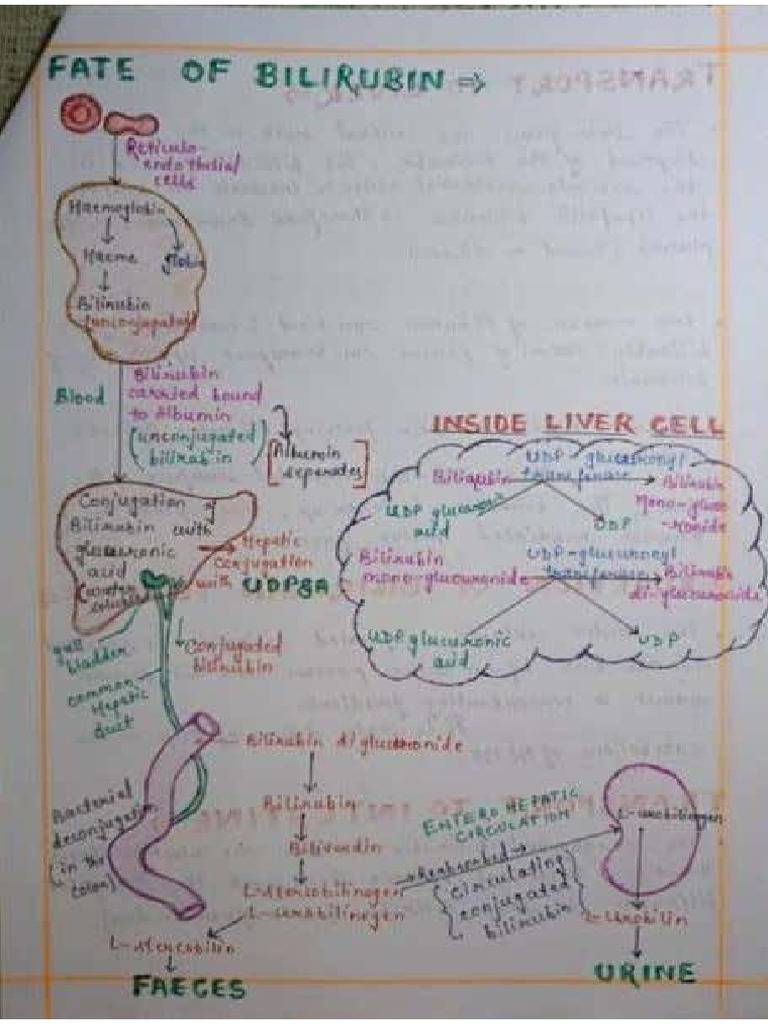 FATE OF BILIRUBIN ⇒
Reticulo-
endothelial
cells
Haemoglobin
Haeme globin
Bilirubin
(unconjugated)
Blood
Bilirubin
carried bound
to Albumin
(unconjugated
bilirubin)
[Albumin
seperates]
Conjugation of
Bilirubin with
glucuronic
acid
(water
soluble)
Hepatic
conjugation
with UDPGA
gall
bladder
common
Hepatic
duct
Conjugated
bilirubin
INSIDE LIVER CELL
UDP-glucuronyl
transferase
Bilirubin
Bilirubin
Mono-glucu
-ronide
UDP glucuronic
acid
UDP
Bilirubin
mono-glucuronide
UDP-glucuronyl
transferase
Bilirubin
di-glucuronide
UDP glucuronic
acid
UDP
Bacterial
deconjugation
(in the
colon)
Bilirubin diglucuronide
Bilirubin
L-stercobilinogen
L-urobilinogen
L-stercobilin
FAECES
ENTERO HEPATIC
CIRCULATION
Reabsorbed
{circulating
conjugated
bilirubin}
L-urobilinogen
L-Urobilin
URINE